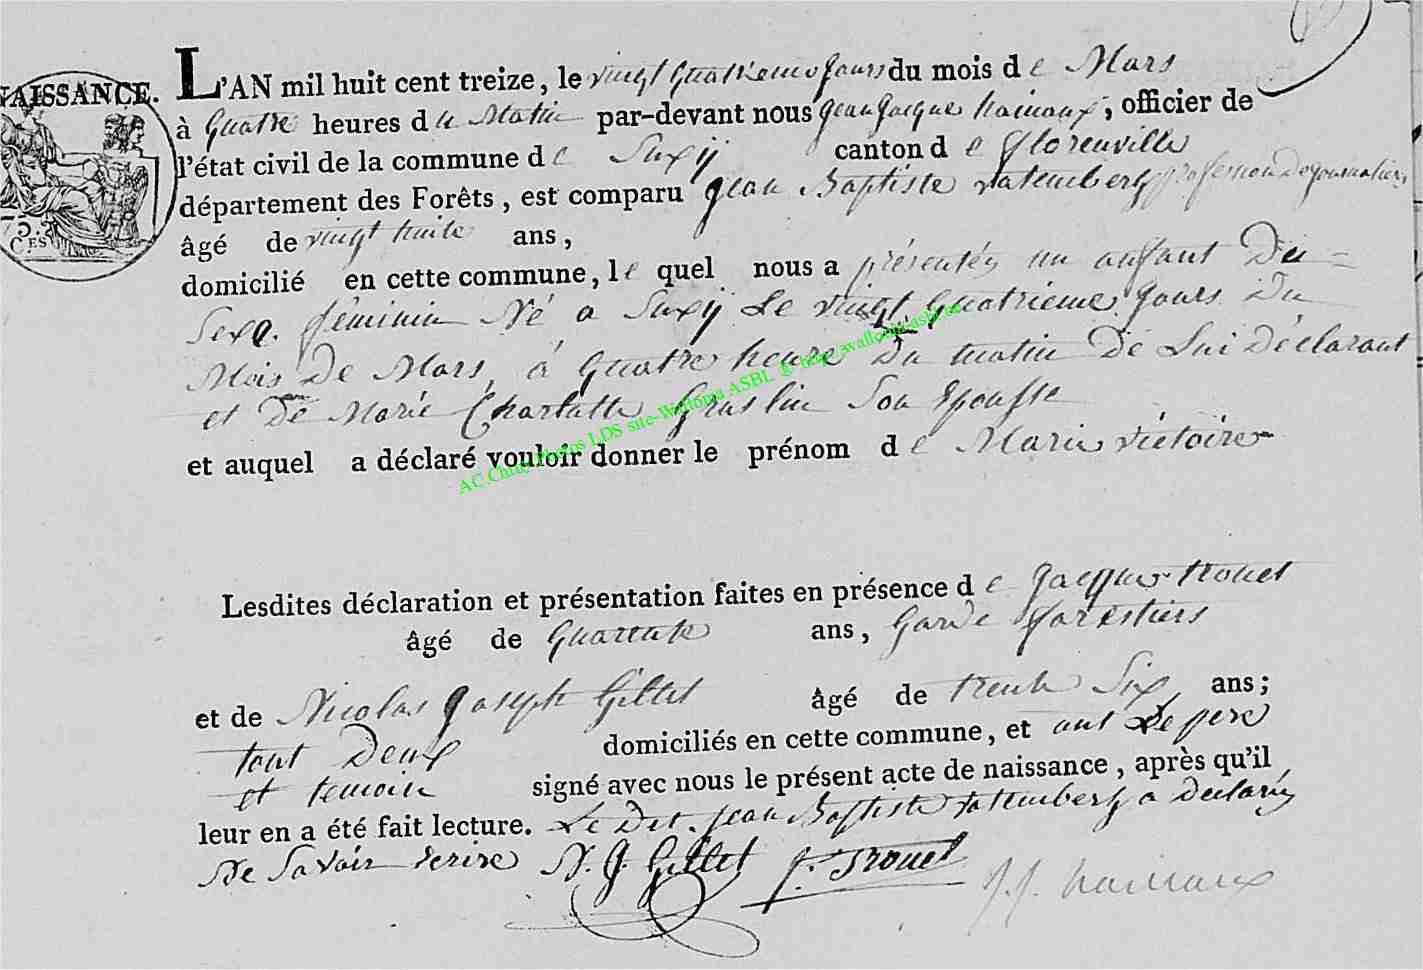 NAISSANCE.
L'AN mil huit cent treize, le vingt quatrieme jours du mois de Mars
à quatre heures du Matin par-devant nous jean jacque hainaux, officier de
l'état civil de la commune de Suxÿ canton de florenville
département des Forêts, est comparu jean Baptiste profession de journaliers
âgé de vingt huite ans,
domicilié en cette commune, le quel nous a présentéz un anfant Du
Sexe féminin Né a Suxÿ Le vingt quatrieme jours Du
Mois De Mars, à quatre heure Du matin De Lui Déclarant
et De Marie Charlatte Graslin Son Epousse
et auquel a déclaré vouloir donner le prénom de Marie victoire
Lesdites déclaration et présentation faites en présence de jacques trouet
âgé de quarente ans, Garde forestiers
et de Nicolas joseph Gillet âgé de trente Six ans;
tout Deux domiciliés en cette commune, et ont Le pere
et temoin signé avec nous le présent acte de naissance, après qu'il
leur en a été fait lecture. Le Dit. jean Baptiste a Declarez
Ne Savoir écrire N. J. Gillet J. Trouet J. J. hainaux
75.
CES
AC.Chiny Photos LDS site-Wallonia ASBL